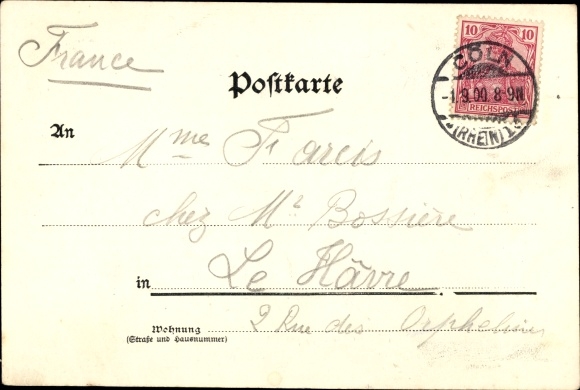 France
Postkarte
10 10
CÖLN
-1.9.00 8-9N
REICHSPOST
(RHEIN) 1
An
Mmes Farcis
chez Mr Bossière
in Le Hâvre
Wohnung 2 Rue des Orphelines
(Straße und Hausnummer)